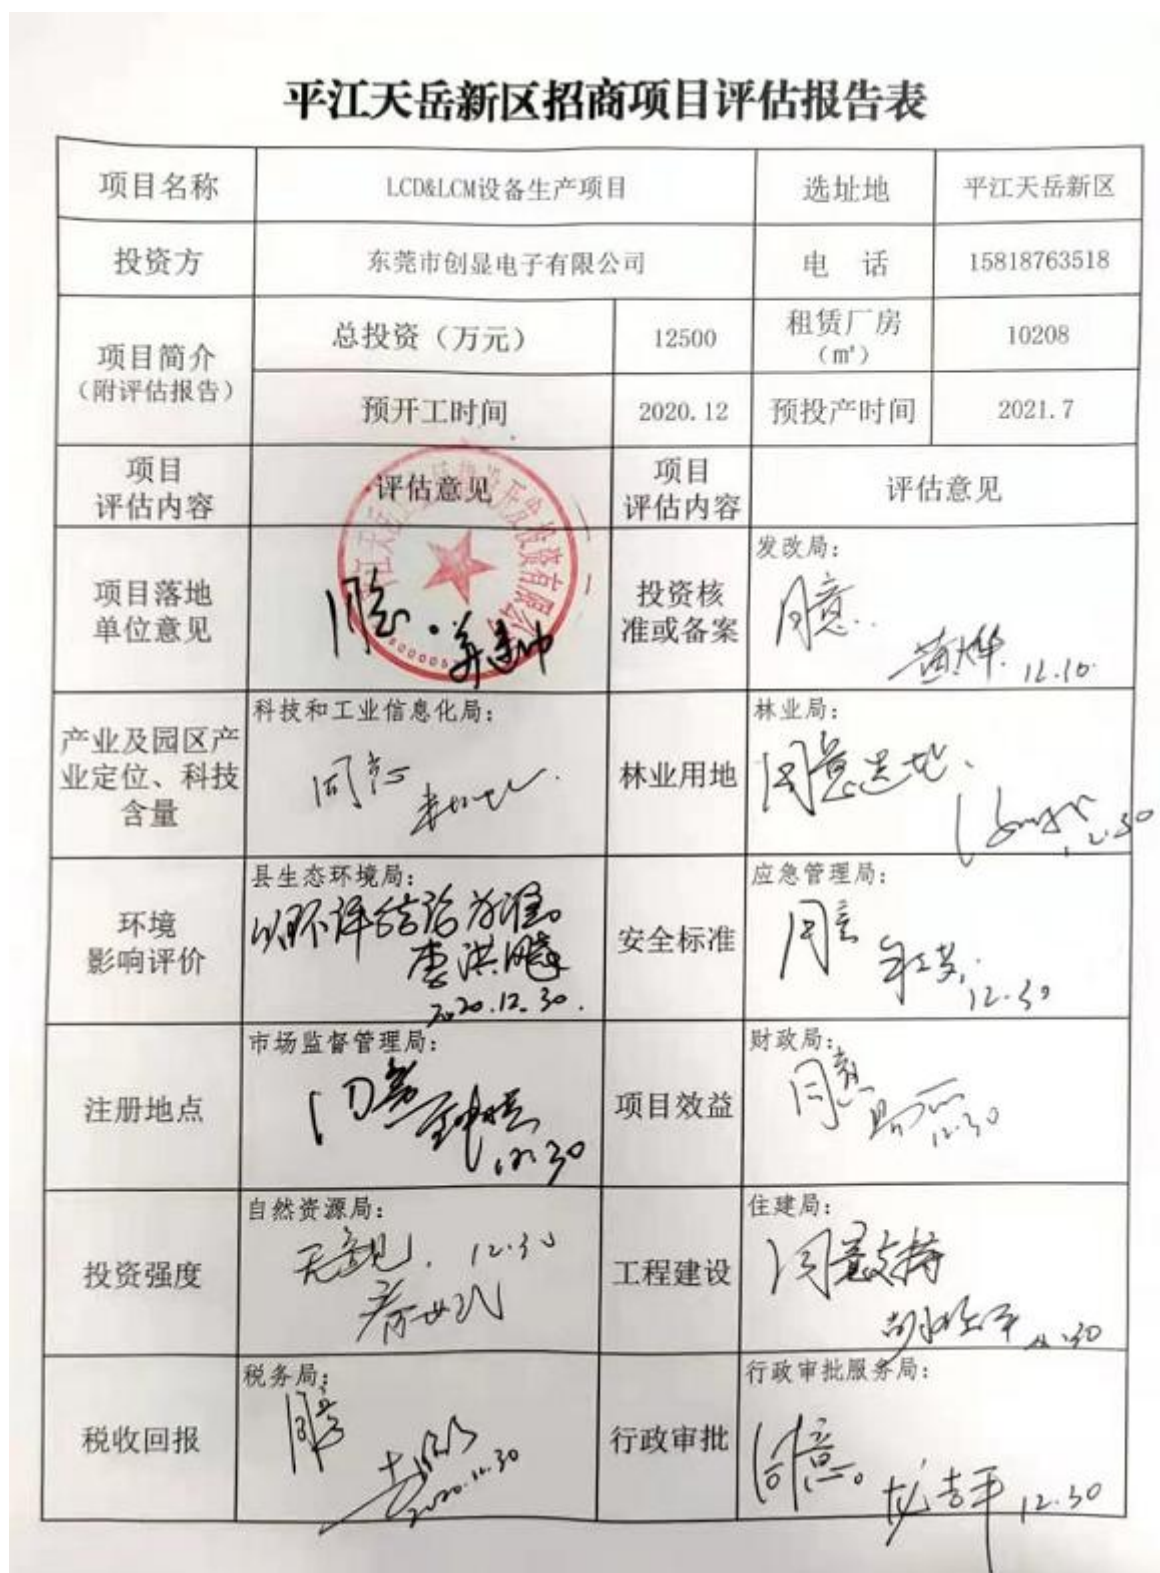 平江天岳新区招商项目评估报告表
项目名称
LCD&LCM设备生产项目
选址地
平江天岳新区
投资方
东莞市创显电子有限公司
电 话
15818763518
项目简介
(附评估报告)
总投资（万元）
12500
租赁厂房
（㎡）
10208
预开工时间
2020.12
预投产时间
2021.7
项目
评估内容
评估意见
项目
评估内容
评估意见
项目落地
单位意见
同意.
投资核
准或备案
发改局:
同意.
黄烨. 12.10
产业及园区产
业定位、科技
含量
科技和工业信息化局:
同意
林业用地
林业局:
同意选地.
12.30
环境
影响评价
县生态环境局:
以环评结论为准。
李洪
2020.12.30.
安全标准
应急管理局:
同意
12.30
注册地点
市场监督管理局:
同意
12.30
项目效益
财政局:
同意
12.30
投资强度
自然资源局:
无意见. 12.30
工程建设
住建局:
同意支持
12.30
税收回报
税务局:
同意
2020.12.30
行政审批
行政审批服务局:
同意。
12.30